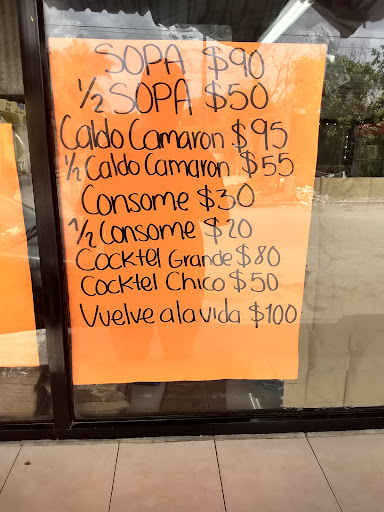 SOPA $90
½ SOPA $50
Caldo Camaron $95
½ Caldo Camaron $55
Consome $30
½ Consome $20
Cocktel Grande $80
Cocktel Chico $50
Vuelve a la vida $100